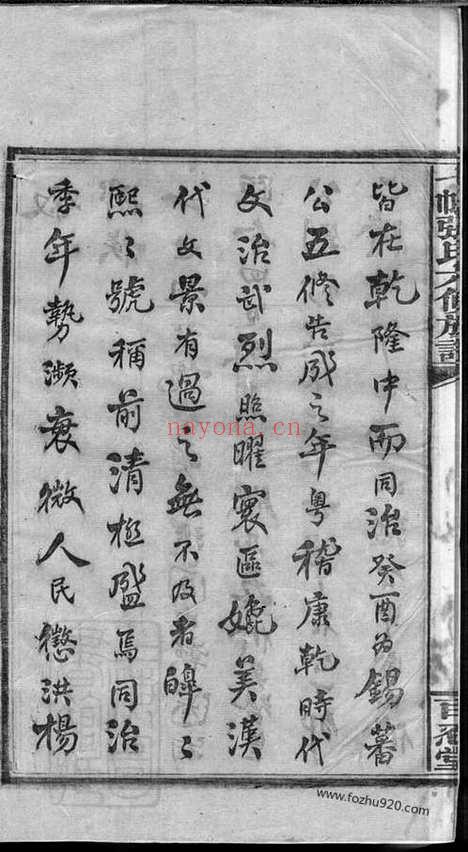 皆在乾隆中而同治癸酉為錫蕃
公五修告成之年粵稽康乾時代
文治武烈照曜寰區媲美漢
代文景有過之無不及者皞〻
熙〻號稱前清極盛焉同治
季年勢瀕衰微人民懲洪楊
張氏六修族譜
百忍堂
nayona.cn
www.fozhu920.com